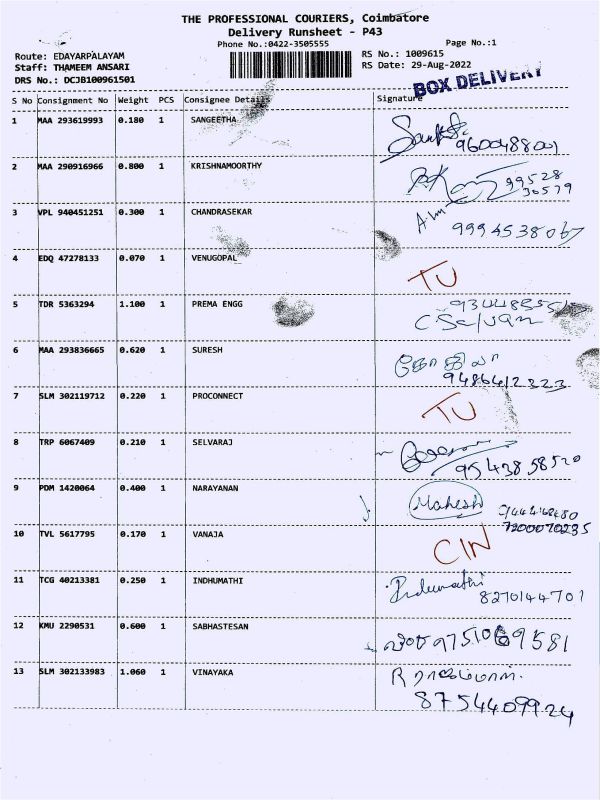 THE PROFESSIONAL COURIERS, Coimbatore
Delivery Runsheet - P43
Phone No.:0422-3505555
Page No.:1
Route: EDAYARPALAYAM
RS No.: 1009615
Staff: THAMEEM ANSARI
RS Date: 29-Aug-2022
DRS No.: DCJB100961501
BOX DELIVERY
S No Consignment No Weight PCS Consignee Details Signature
1 MAA 293619993 0.180 1 SANGEETHA
9600488001
2 MAA 290916966 0.800 1 KRISHNAMOORTHY
99528
30579
3 VPL 940451251 0.300 1 CHANDRASEKAR
9994538067
4 EDQ 47278133 0.070 1 VENUGOPAL
TU
5 TDR 5363294 1.100 1 PREMA ENGG
C Selvan
6 MAA 293836665 0.620 1 SURESH
கோகிலா
9486412323
7 SLM 302119712 0.220 1 PROCONNECT
TU
8 TRP 6067409 0.210 1 SELVARAJ
9543858520
9 PDM 1420064 0.400 1 NARAYANAN
Mahesh
7200070235
10 TVL 5617795 0.170 1 VANAJA
CIN
11 TCG 40213381 0.250 1 INDHUMATHI
Indumathi
8270144701
12 KMU 2290531 0.600 1 SABHASTESAN
9751069581
13 SLM 302133983 1.060 1 VINAYAKA
8754409924